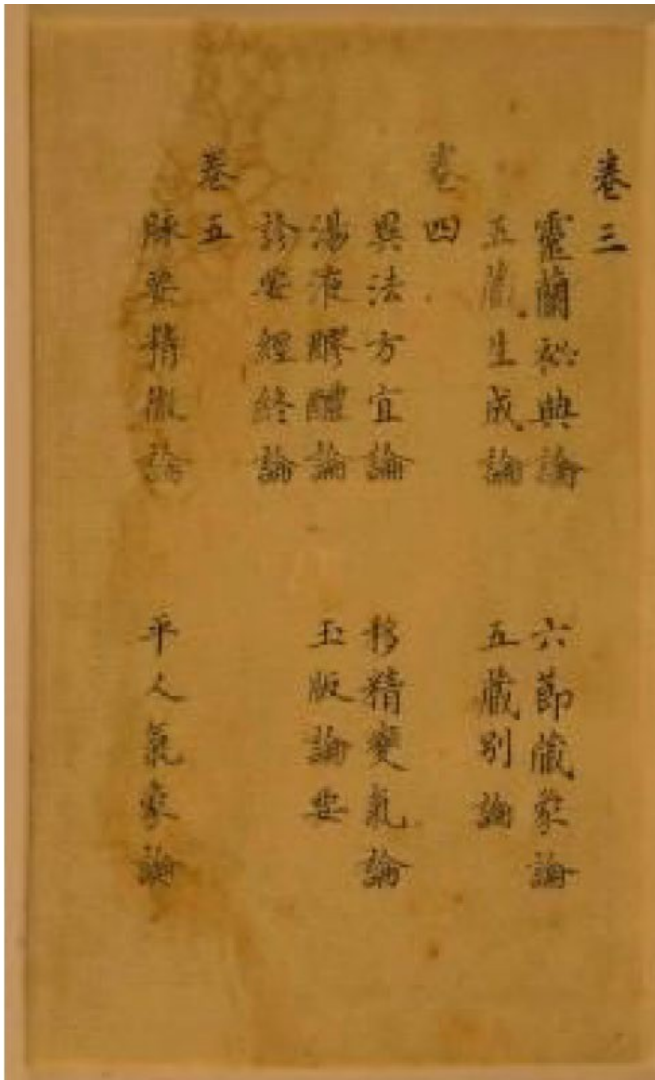 卷三
靈蘭秘典論 六節藏象論
五藏生成論 五藏別論
卷四
異法方宜論 移精變氣論
湯液醪醴論 玉版論要
診要經終論
卷五
脈要精微論 平人氣象論